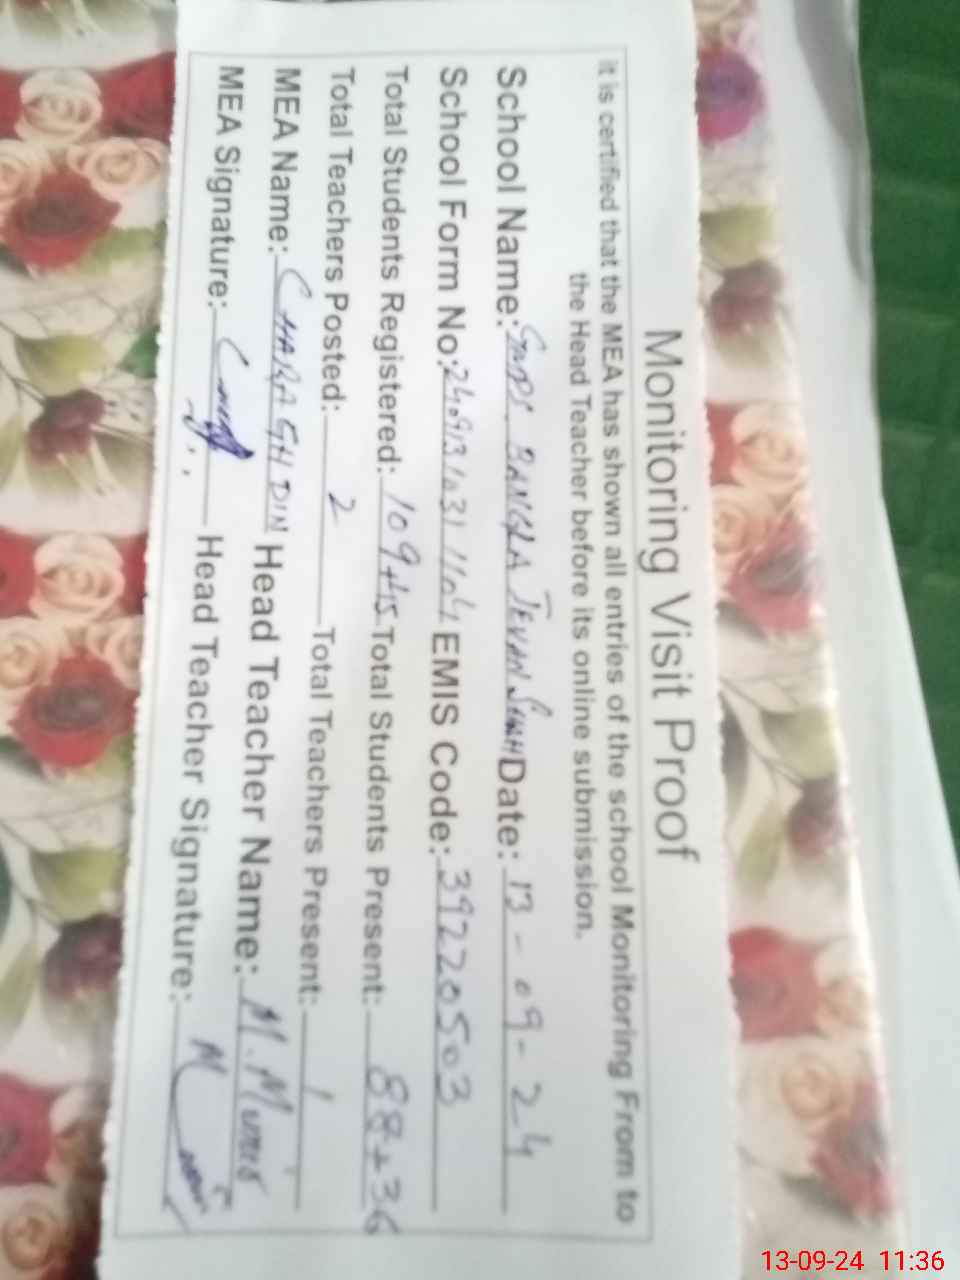 Monitoring Visit Proof
it is certified that the MEA has shown all entries of the school Monitoring From to
the Head Teacher before its online submission.
School Name: GMPS BANGLA JEVAN SHAH Date: 13-09-24
School Form No: EMIS Code: 39220503
Total Students Registered: 109+45 Total Students Present: 88+36
Total Teachers Posted: 2 Total Teachers Present: 1
MEA Name: CHARAGH DIN Head Teacher Name: M. Munir
MEA Signature: Head Teacher Signature:
13-09-24 11:36